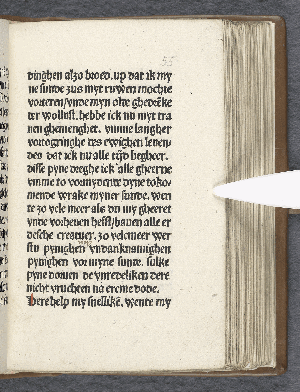 55
dinghen alzo broed. up dat ik my
ne sunde zus myt ruwen mochte
vorteren/vnde myn olte ghedēke
ter wollust. hebbe ick nu myt tra
nen ghemenghet. vmme langher
vortogringhe des ewighen leuen
den dat ick nu alle tijd begheer.
disse pyne dreghe ick alle gheerne
vmme to vormydente dyne toko
mende wrake myner sunde. wen
te zo vele meer als du my gheeret
vnde vorheuen hefst/bauen alle er
desche creatuer. zo velemeer wer
stu pynighen vndanknamighen
pynighen vor myne sunde. sulke
pyne doruen de vnredeliken dere
nicht vruchten na ereme dode.
Here help my snellikē. wente my